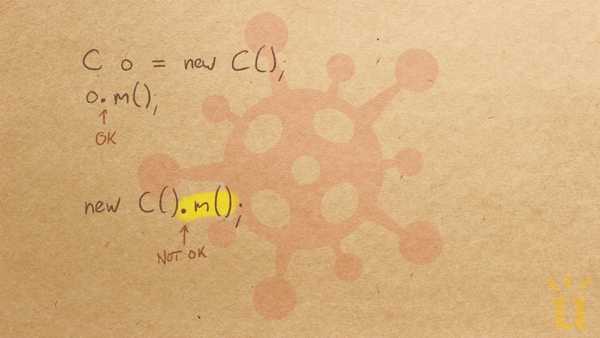 C o = new C();
o.m();
OK
new C().m();
NOT OK